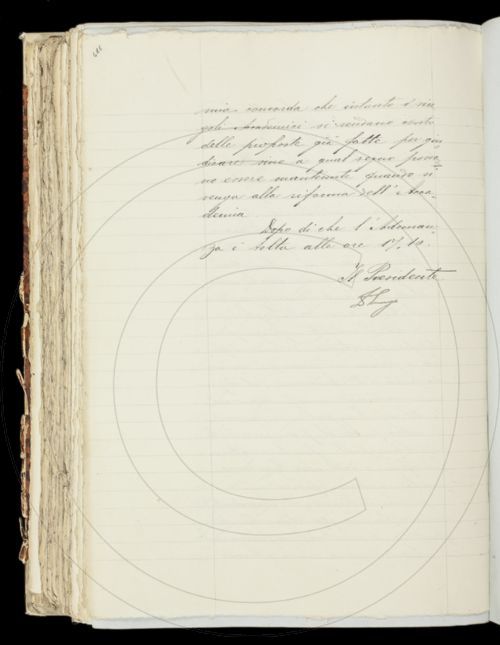 mia concorda che intanto i sin
goli Accademici si rendano conto
delle proposte già fatte per giu
dicare sino a qual segno posso
no essere mantenute quando si
venga alla riforma dell' Acca-
demia.
Dopo di che l' Adunan
za è tolta alle ore
Il Presidente